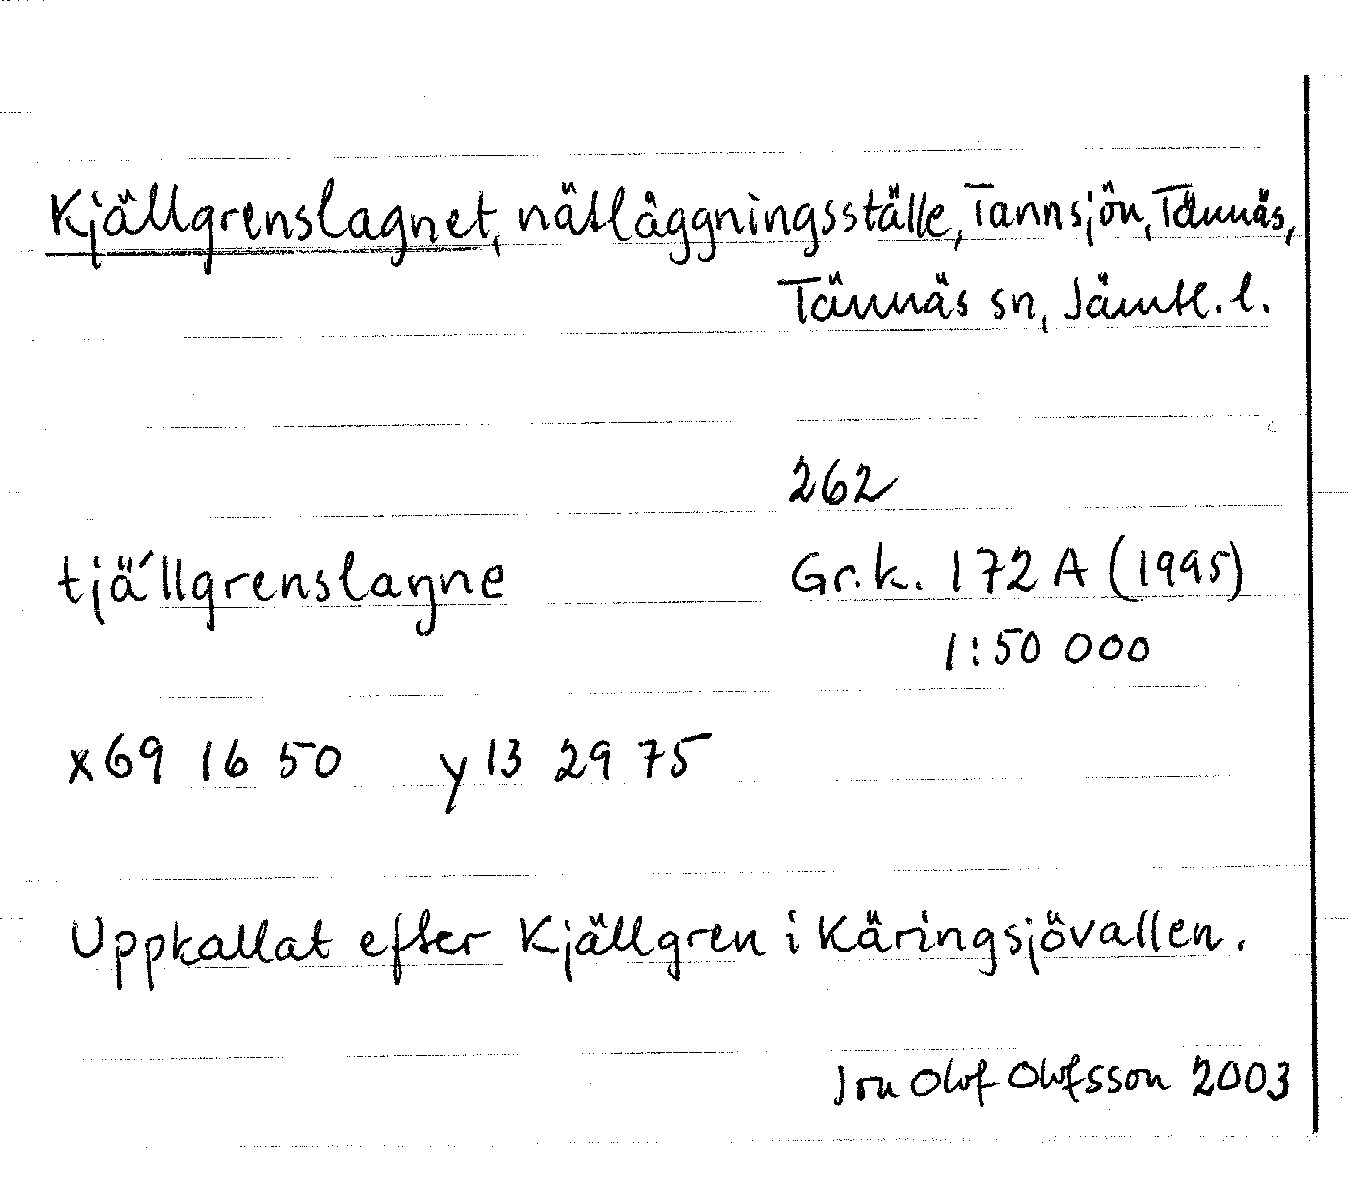 Kjällgrenslagnet, nätläggningsställe, Tannsjön, Tännäs,
Tännäs sn, Jämtl. l.
262
tjä´llgrenslaŋne Gr.k. 172 A (1995)
1:50 000
x 69 16 50 y 13 29 75
Uppkallat efter Kjällgren i Käringsjövallen.
Jon Olof Olofsson 2003